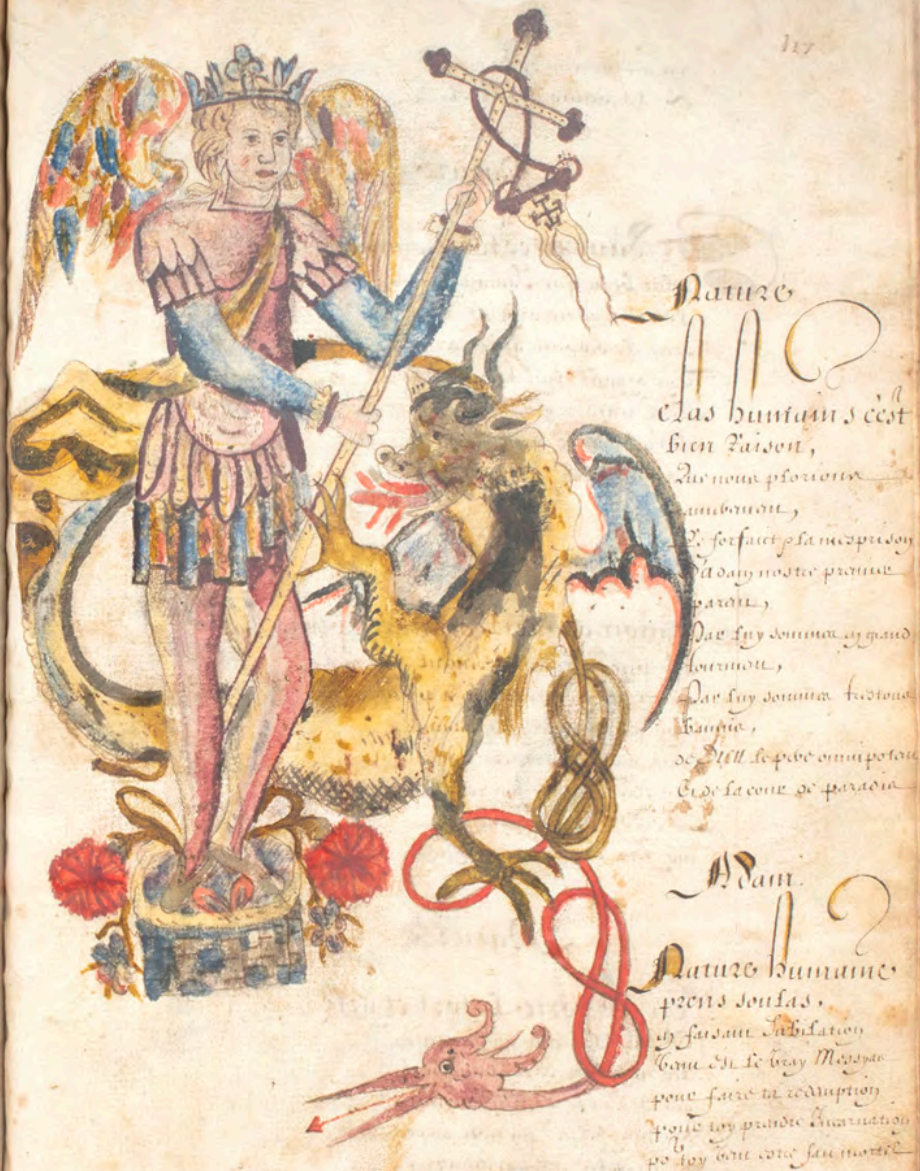 117
Nature
elas humains c'est
bien Raison,
Que nous plorions
amèrement,
Le forfaict & la mesprison
d'Adam nostre premier
parent,
Par luy sommes en grand
tourment,
Par luy sommes trestous
bannis,
de Dieu le pere omnipotent
Et de la court de paradis
Adam.
Nature humaine
prens soulas,
en faisant Jubilation
Venu est le vray Messyas
pour faire ta redemption
pour toy prendre Incarnation
po[ur] toy